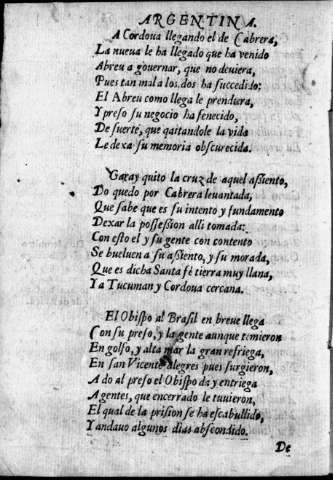 ARGENTINA.
A Cordoua llegando el de Cabrera,
La nueua le ha llegado que ha venido
Abreu a gouernar, que no deuiera,
Pues tan mal a los dos ha succedido:
El Abreu como llega le prendiera,
Y preso su negocio ha fenecido,
De suerte, que quitandole la vida
Le dexa su memoria obscurecida.
Garay quito la cruz de aquel assiento,
Do quedo por Cabrera leuantada,
Que sabe que es su intento y fundamento
Dexar la possession alli tomada:
Con esto el y su gente con contento
Se bueluen a su assiento, y su morada,
Que es dicha Santa fè tierra muy llana,
Y a Tucuman y Cordoua cercana.
El Obispo al Brasil en breue llega
Con su preso, y la gente aunque temieron
En golfo, y alta mar la gran refriega,
En san Vicente alegres pues surgieron,
A do al preso el Obispo da y entriega
A gentes, que encerrado le tuuieron,
El qual de la prision se ha escabullido,
Y anduuo algunos dias abscondido.
De